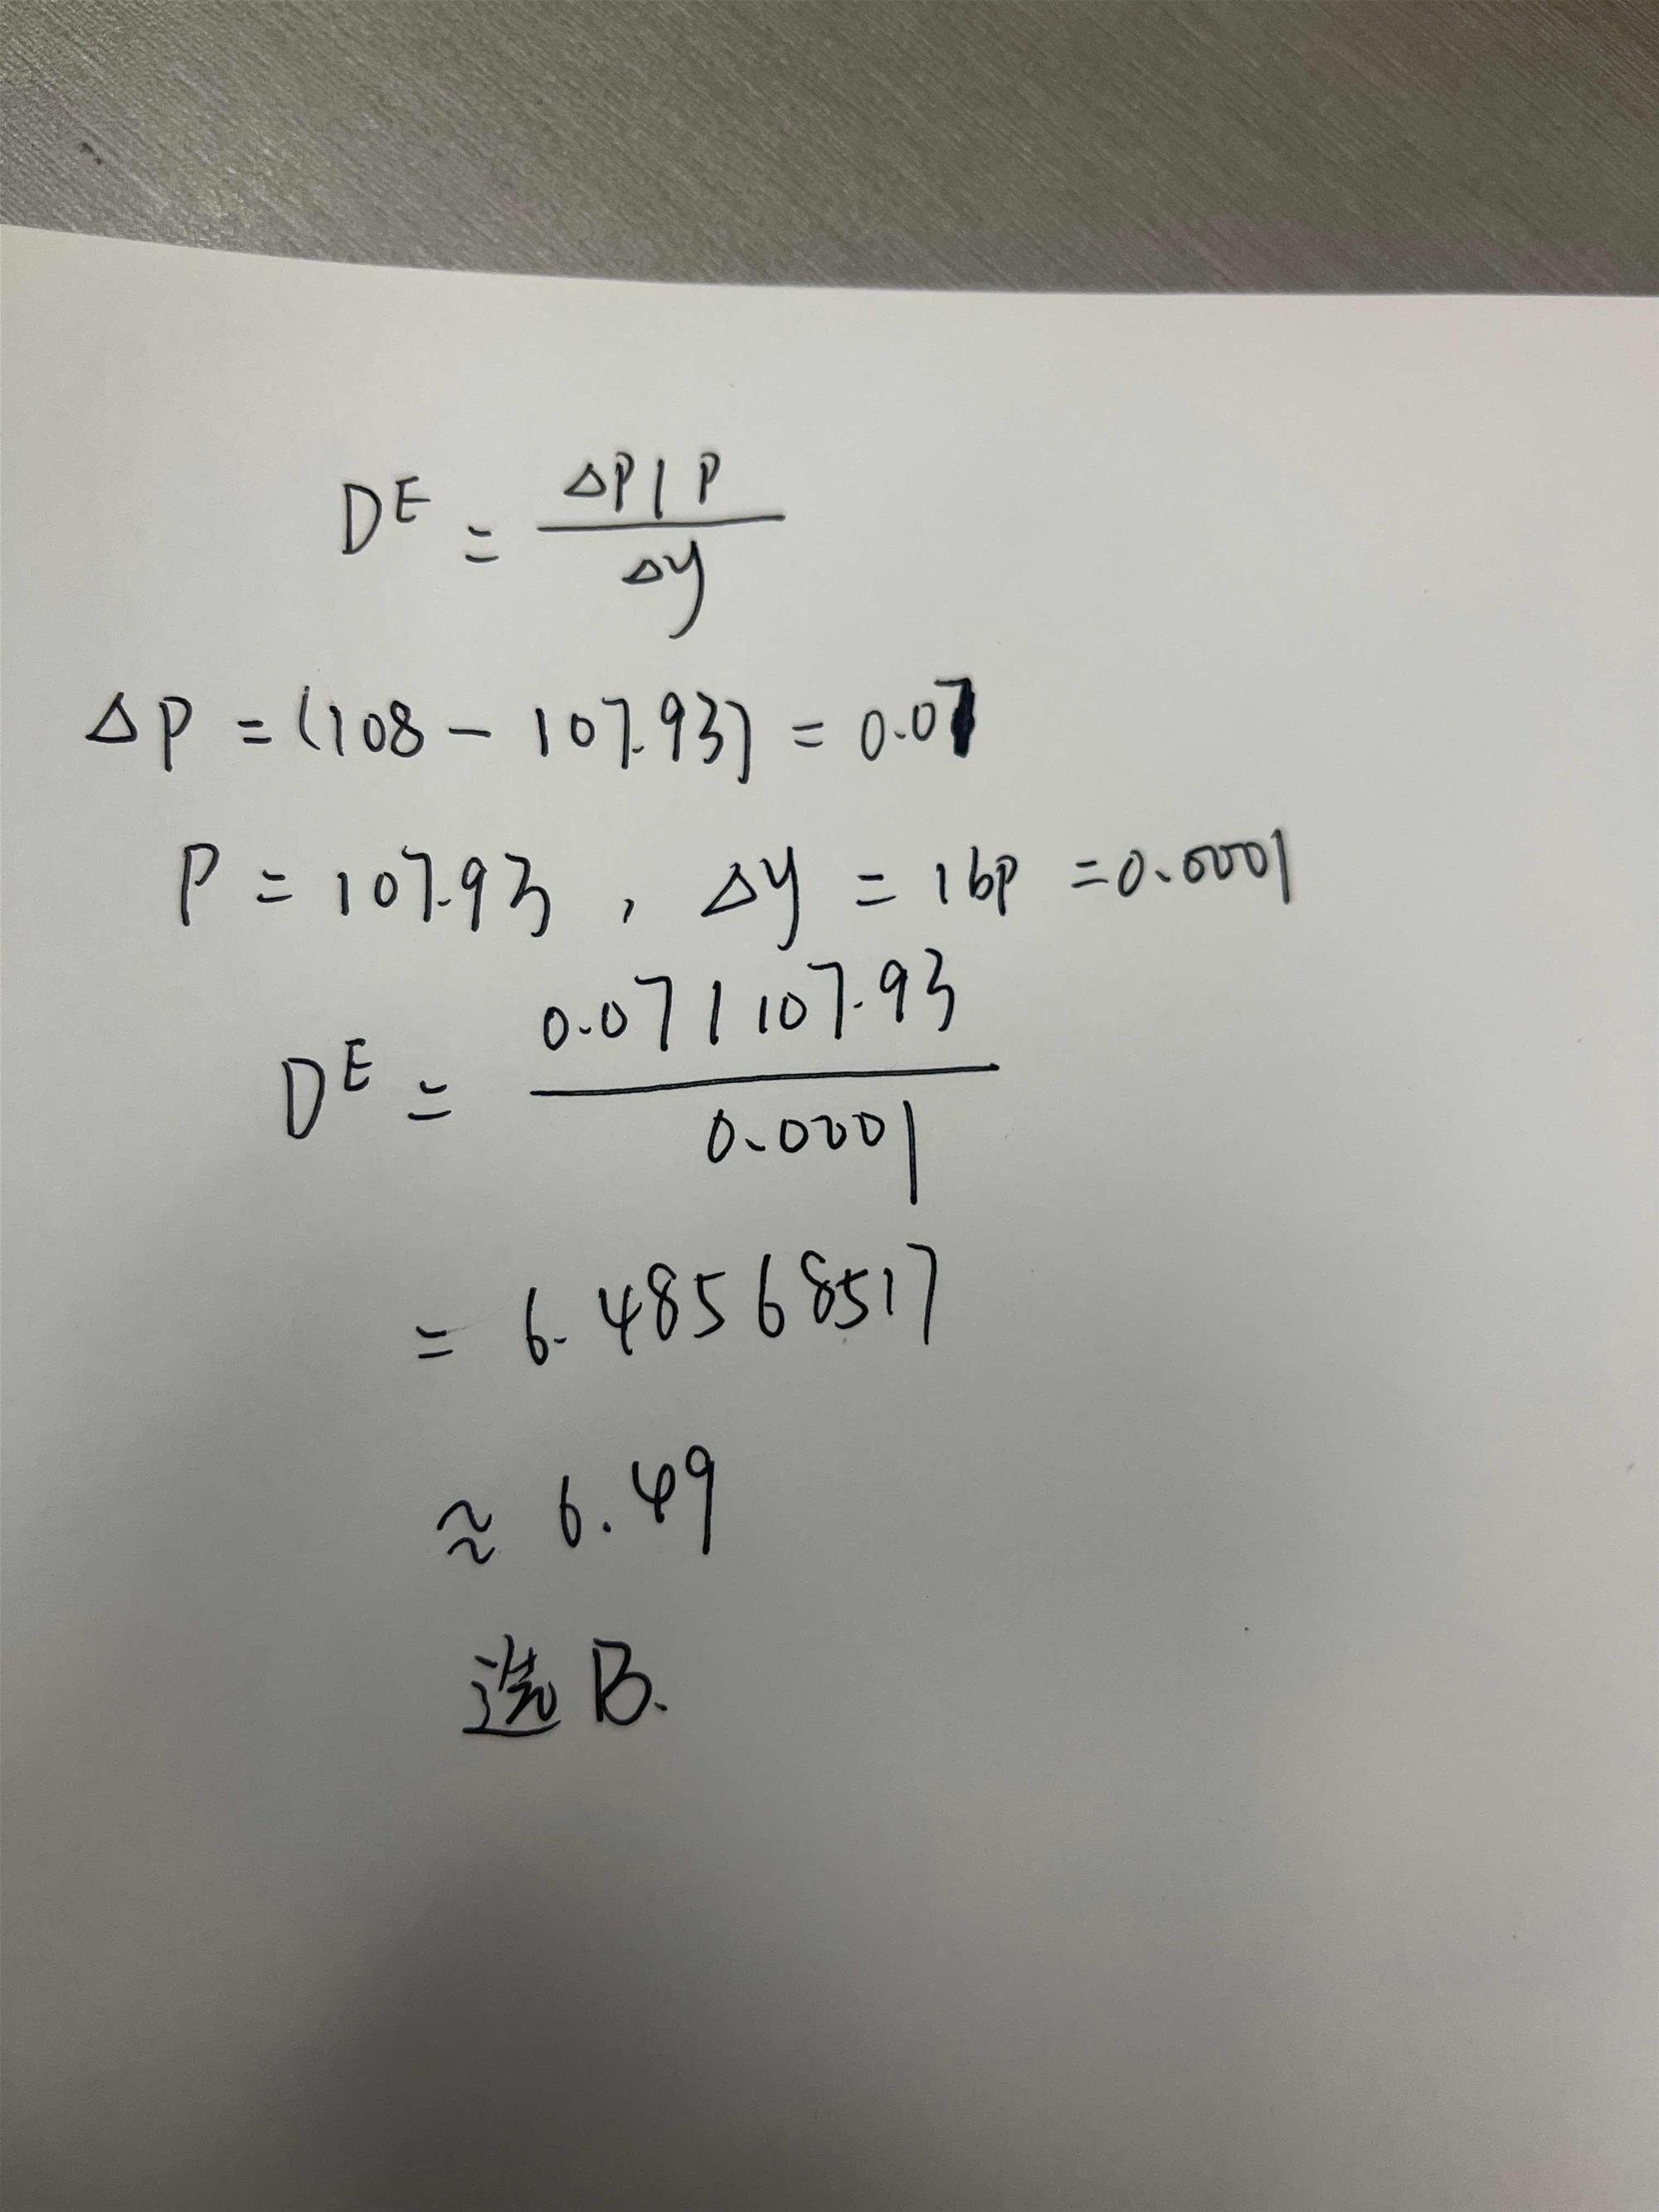 D^E = ΔP/P
Δy
ΔP = (108 - 107.93) = 0.07
P = 107.93, Δy = 1bp = 0.0001
D^E = 0.07/107.93
0.0001
= 6.48568517
≈ 6.49
选 B.